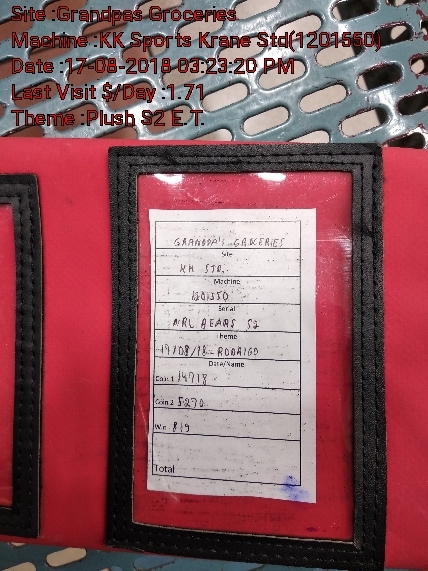 Site :Grandpas Groceries
Machine :KK Sports Krane Std(1201550)
Date :17-08-2018 03:23:20 PM
Last Visit $/Day :1.71
Theme :Plush S2 E.T.
GRANDPA'S GROCERIES
Site
KK STD.
Machine
1201550
Serial
NRL BEARS S2
Theme
17/08/18 - RODRIGO
Date/Name
Coin 1 14718
Coin 2 5270
Win 819
Total